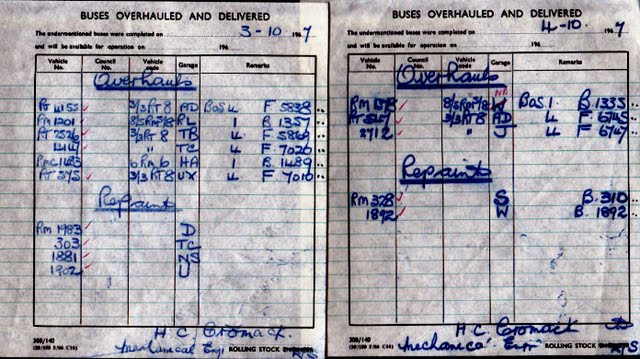 BUSES OVERHAULED AND DELIVERED
The undermentioned buses were completed on 3-10 1967
and will be available for operation on 196
Vehicle No. Council No. Vehicle code Garage Remarks
Overhauls
RT 4155 3/3RT8 AD BOS 4 F 5838
RM 1201 PL 1 B 1357
RT 2526 3/3RT8 TB 4 F 5869
" TC 4 F 7026
RMC 1483 6 RM 6 HA 1 B 1489
RT 575 3/3 RT8 UX 4 F 7016
Repaints
RM 1983 D
303 TC
1881 NS
1902 U
H C Cromack
Mechanical Engr ROLLING STOCK ENGINEER
BUSES OVERHAULED AND DELIVERED
The undermentioned buses were completed on 4-10. 1967
and will be available for operation on 196
Vehicle No. Council No. Vehicle code Garage Remarks
Overhauls
BOS 1 B 1335
3/3RT8 AD 4 F 6745
2712 " J 4 F 6747
Repaints
RM 328 S B. 310
1892 W B. 1892
H C Cromack
Mechanical Engr ROLLING STOCK ENGINEER